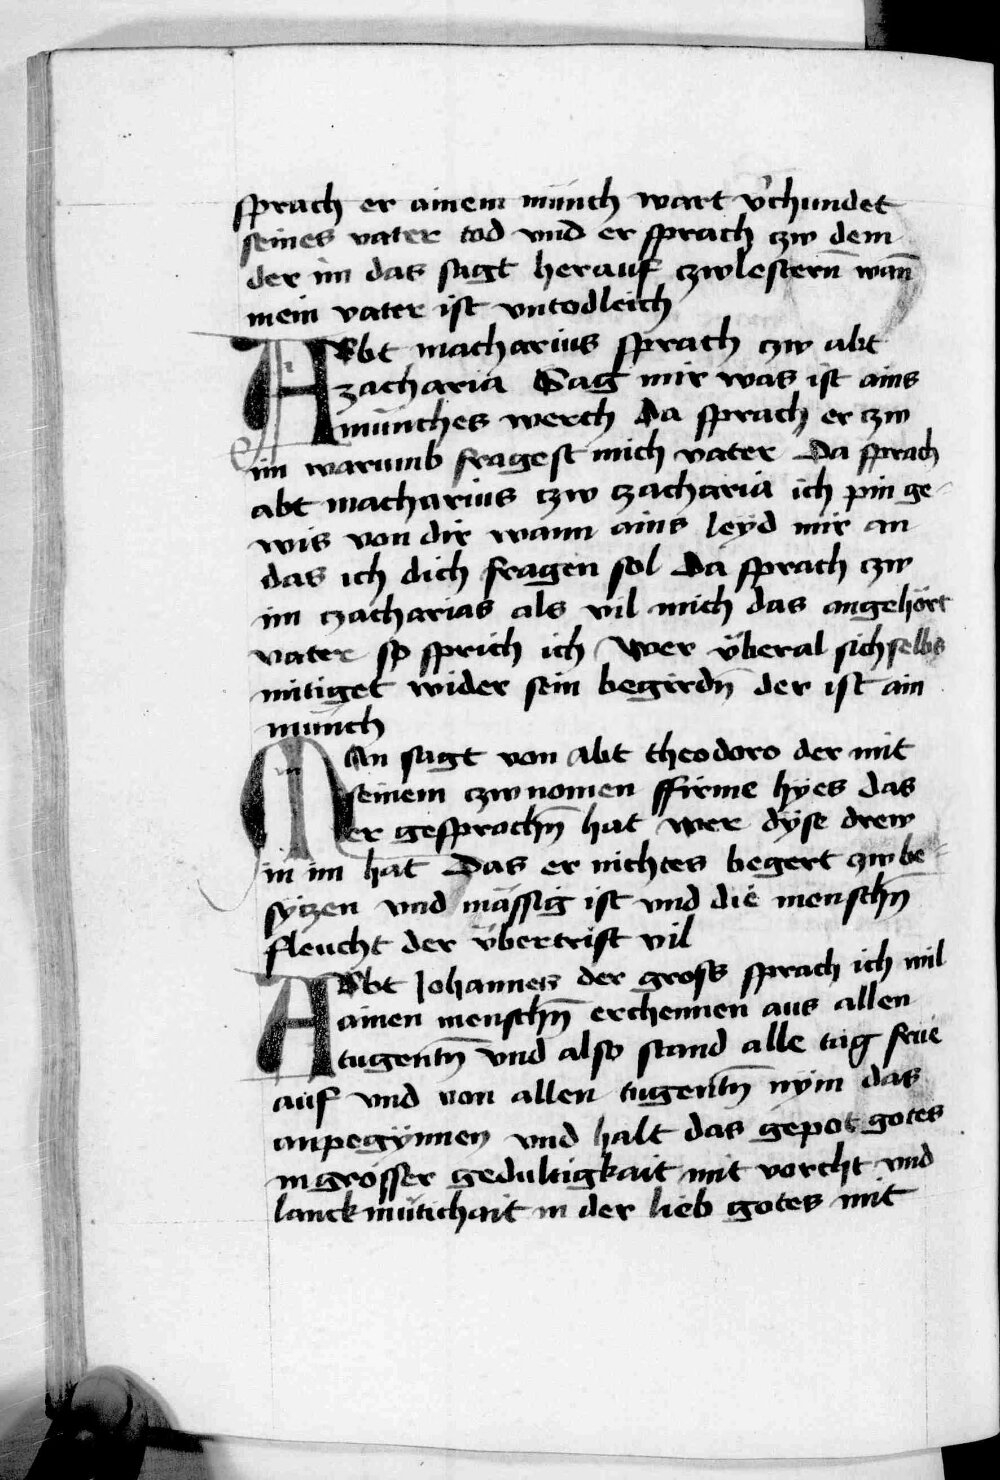 sprach er ainem münch wart v̉chundet
seines vater tod vnd er sprach czw dem
der im das sagt herauf czwlestern̄ wan̄
mein vater ist vntodleich
Abt macharius sprach czw abt
zacharia Sag mir was ist ains
münches werch Da sprach er czw
im warumb fragest mich vater Da sprach
abt macharius czw czacharia ich pin ge-
wis von dir wann ains leyd mir an
das ich dich fragen sol Da sprach czw
im czacharias als vil mich das angehört
vater so sprich ich Wer überal sich selbs
nütiget wider sein begirdn̄ der ist ain
münch
Man sagt von abt theodoro der mit
seinem czwnomen ffirme hyes das
er gesprochn̄ hat wer dyse drew
in im hat Das er nichtes begert czw be-
syczen vnd mässig ist vnd die menschn̄
fleucht der übertrift vil
Abt Johannes der gross sprach ich wil
ainen menschn̄ erchennen aus allen
tugentn̄ vnd also stand alle tag frue
auf vnd von allen tugentn̄ nym das
anpegynnen vnd halt das gepot gotes
in grosser gedultigkait mit vorcht vnd
lanckmütichait in der lieb gotes mit